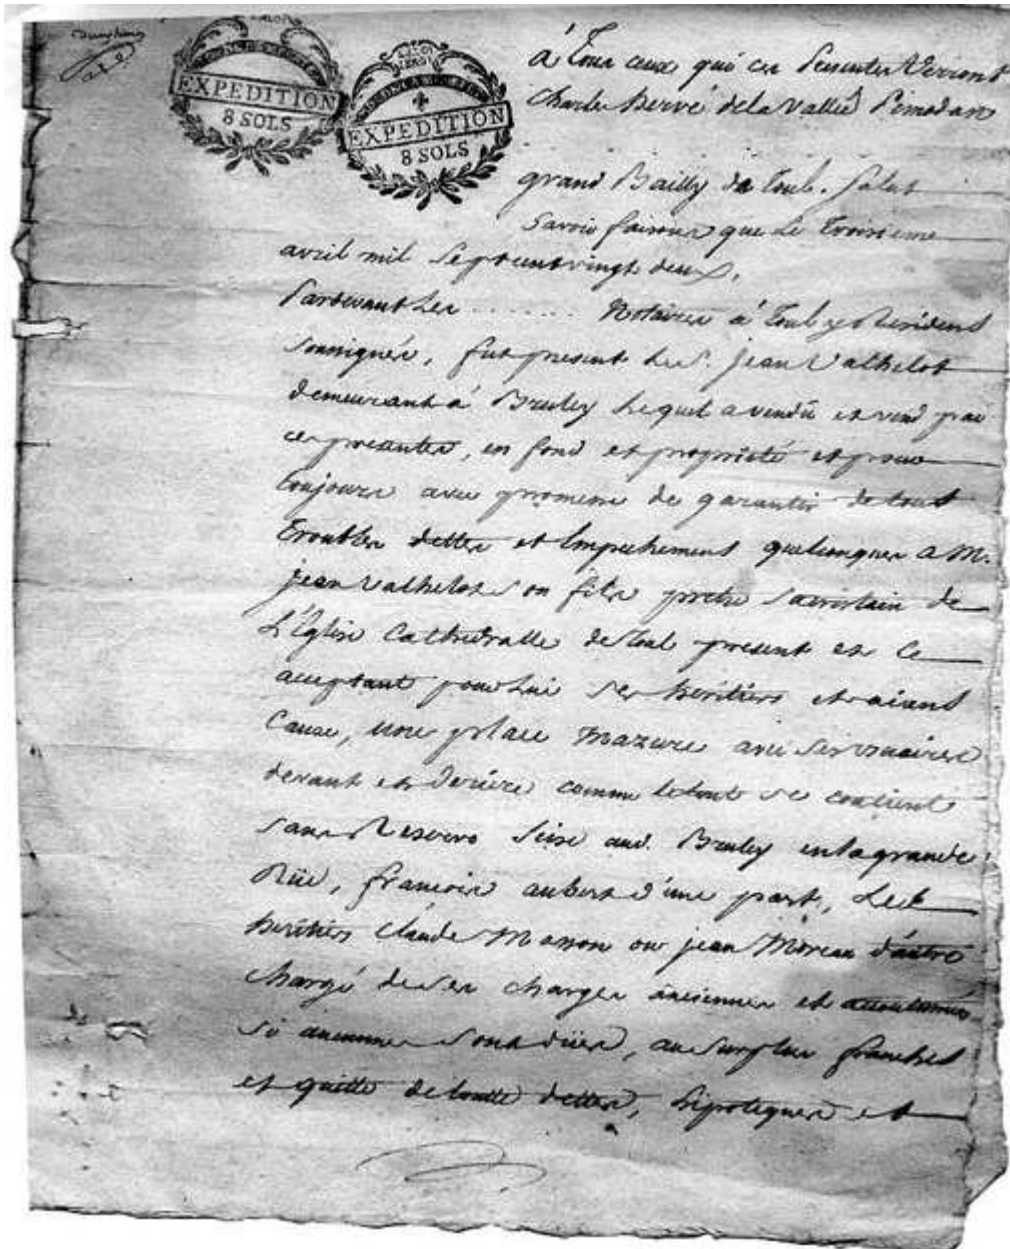 EXPEDITION
8 SOLS
EXPEDITION
8 SOLS
à Tous ceux qui ces Presentes Verront
Charles hervé de la Vallée Pimodan
grand Bailly de Toul. Salut
Savoir faisons que Le Troisieme
avril mil Septcentvingt deux,
Pardevant Les ........ Notaires à Toul y Residens
soussignés, fut present Le S. jean Valhelot
demeurant à Bruley Lequel a vendû et vend par
ces presentes, en fond et proprieté et pour
toujours avec promesse de garantir de tous
Troubles dettes et Empechemens quelconques a M.
jean Valhelot son fils pretre sacristain de
L'Eglise Cathedralle de Toul present et ce
acceptant pour Lui ses heritiers et aiant
Cause, une place mazure avec ses usuaires
devant et deriere comme le tout se contient
sans Reserve Seise aud. Bruley en la grande
Rüe, francois aubert d'une part, Les
heritiers Claude Masson ou jean Moreau d'autre
chargé de ses charges anciennes et accoutumés
si aucunes sont dües, au surplus franches
et quitte de toutte dettes, hipoteques et